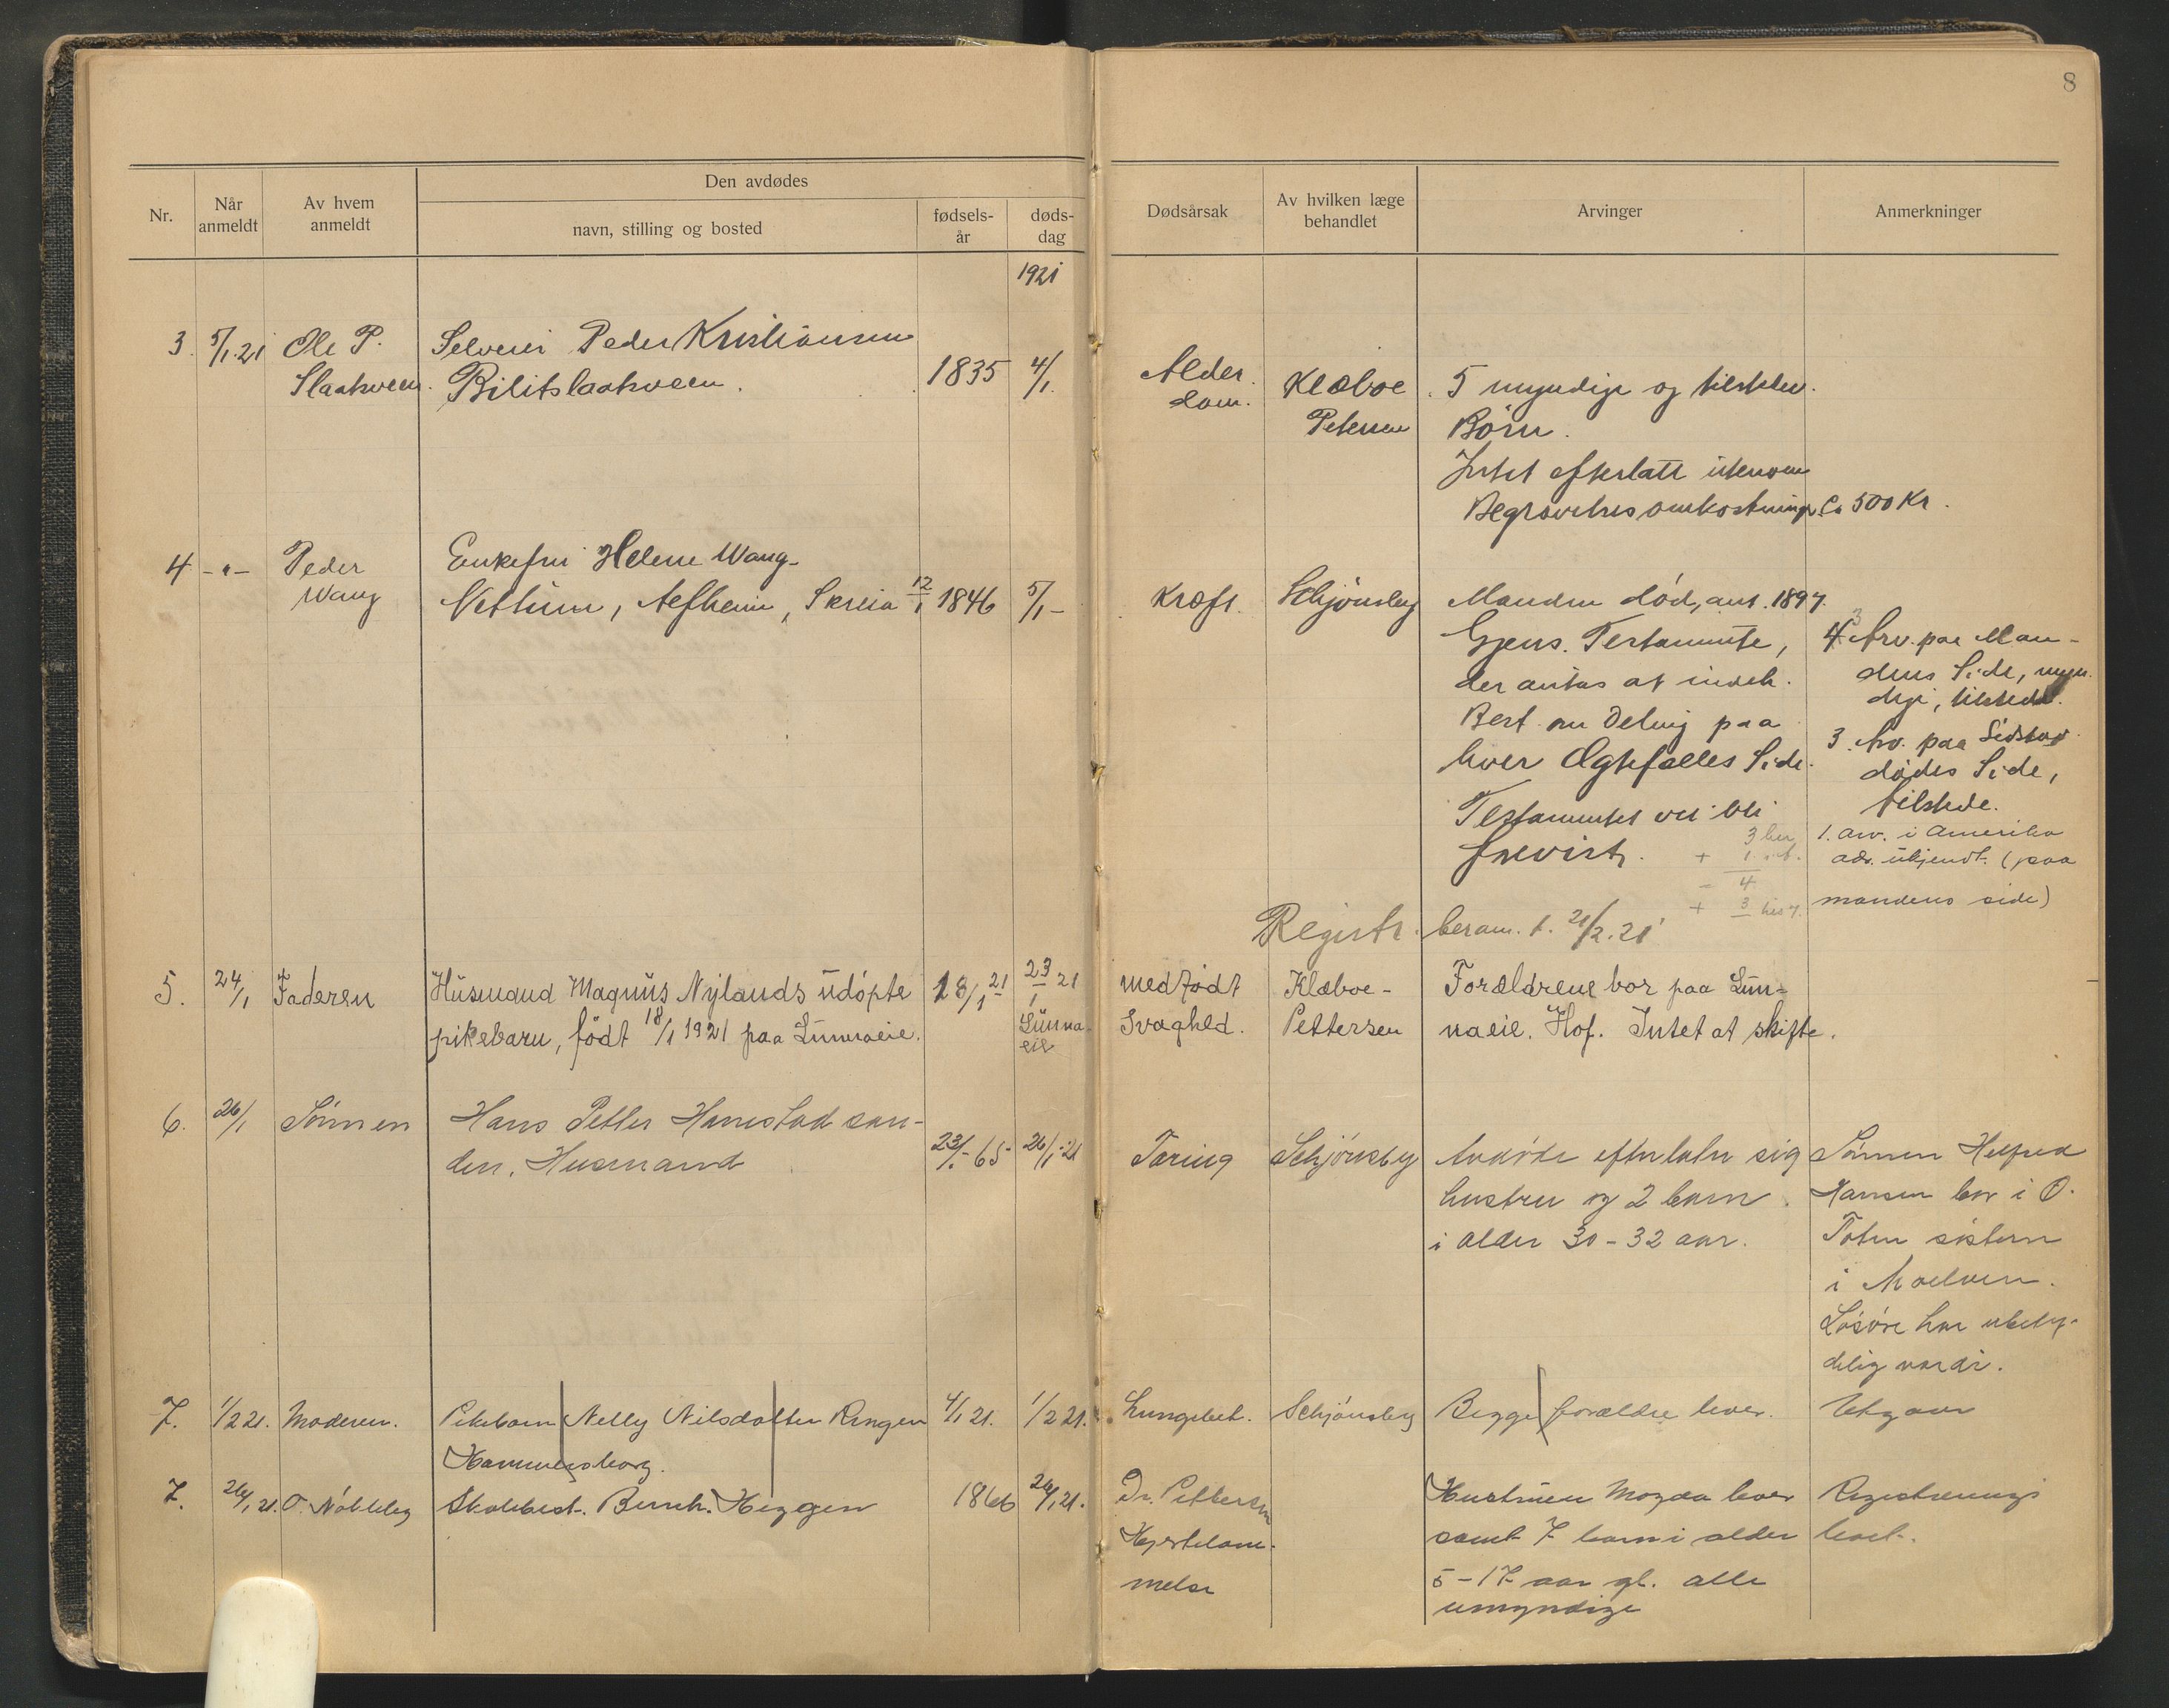 8
Nr.
Når
anmeldt
Av hvem
anmeldt
Den avdødes
navn, stilling og bosted
fødsels-
år
døds-
dag
Dødsårsak
Av hvilken læge
behandlet
Arvinger
Anmerkninger
1921
3. 5/1.21 Ole P. Selveier Peder Kristiansen
Slaatsveen. Bilitslaatsveen. 1835 4/1.
Alder.
dom.
Klæboe
Petersen
5 myndige og tilstedev.
Börn.
Intet efterlatt utenom
Begravelsesomkostninger Ca 500 Kr.
4 -"- Peder Enkefru Helene Wang-
Wang Nettum, Aefheim, Skreia 12/1 1846 5/1-
Kræft. Schjönsby Manden död, ant. 1897.
Gjens. Testamente,
der antas at indeh.
Best. om Deling paa
hver Ægtefælles Side.
Testamentet vil bli
frevist.
3 her
+ 1
- 4
+ 3
4 3 Arv. paa Man-
dens Side, myn-
dige, tilstede.
3 Arv. paa Sidstav
dödes Side,
tilstede.
1. arv. i Amerika
adr. ukjendt. (paa
mandens side)
Registr. beram. t. 21/2.21
5. 24/1 Faderen Husmand Magnus Nylands udöpte 18/1 21 23/1 21
pikebarn, födt 18/1 1921 paa Lunnaeie. Lunna-
eie
medfödt
Svaghed.
Klæboe-
Pettersen
Forældrene bor paa Lun-
naeie. Hof. Intet at skifte.
6. 26/1 Sönnen Hans Petter Hanestadsan-
den. Husmand 23/-65 26/1-21
Tæring Schjönsby Avdöde efterlater sig
hustru og 2 barn
i alder 30-32 aar.
Sönnen Helfred
Hansen bor i Ö.
Toten söstern
i Moelven.
Lösöre har ubety-
delig værdi.
7. 1/2 21. Moderen. Pikebarn Nelly Nilsdatter Ringen 4/1 21. 1/2 21.
Hammersborg.
Lungebet. Schjönsby Begge forældre lever. Utgaar
7. 26/1 21. O. Nökleby Skobest. Bernh. Heggen 1866 26/1 21.
Dr. Pettersen
Hjertelam-
melse
Hustruen Magda lever
samt 7 barn i alder
5-17 aar gl. alle
umyndige
Registrerings